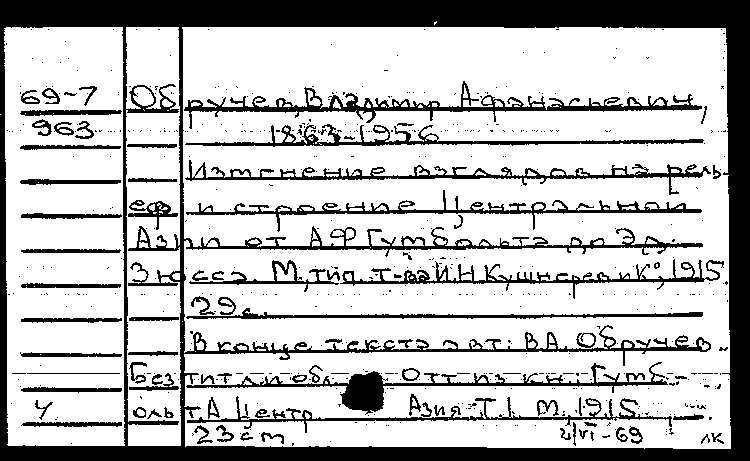 69-7 Обручев, Владимир Афанасьевич,
963 1863-1956
Изменение взглядов на рель-
еф и строение Центральной
Азии от А.Ф Гумбольта до Эд.
Зюсса. М, тип. т-ва И.Н. Кушнерев и К°, 1915.
29 с.
В конце текста авт: В.А. Обручев.
Без тит. л. и обл. Отт из кн.: Гумб-
ч ольт. А Центр Азия Т. I. М, 1915
23 см. 4/VI-69 лк